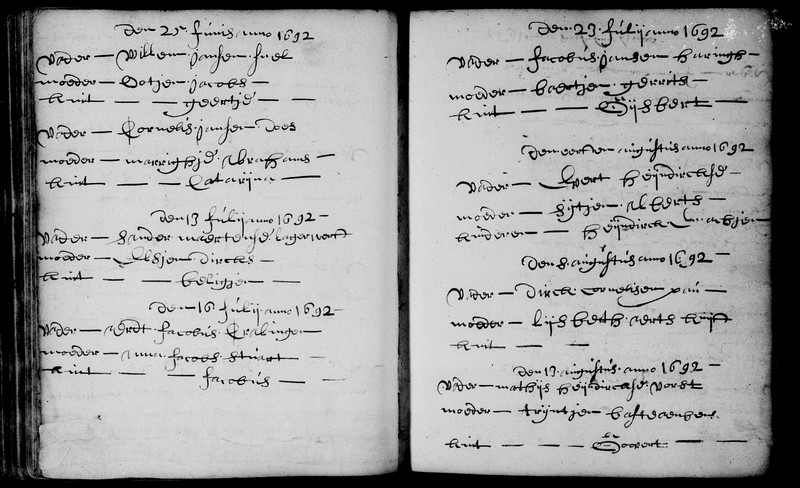 Den 25 Junis anno 1692
Vader — Willem Jansen
moeder — Ootjen Jacobs —
kint — — geertje — —
Vader — Cornelis Jansen Does
moeder — marrighje Abrahams —
kint — — Catarina —
den 13 Julij anno 1692 —
Vader — Sander maertense Lagerwerf
moeder — Elsjen Dircks —
kint — — beligjen — —
den 16 Julij anno 1692 —
Vader — Aerdt Jacobus Cralingen
moeder — Anna Jacobs Stuart —
kint — — Jacobus — —
Den 23 Julij anno 1692
Vader — Jacobus Jansen Haringh —
moeder — baertjen gerrits —
kint — — Gijsbert —
Den eersten augustus anno 1692
Vader — Evert Heijndrickse —
moeder — Sijtjen Alberts —
kinderen — Heijndrick
Den 8 augustus anno 1692 —
Vader — Dirck Cornelissen pau —
moeder — Lijsbeth Aerts
kint — — —
Den 13 augustus anno 1692 —
Vader — mathijs Heijndrickse Vorst
moeder — trijntjen bastiaenhens
kint — — — Govert — —